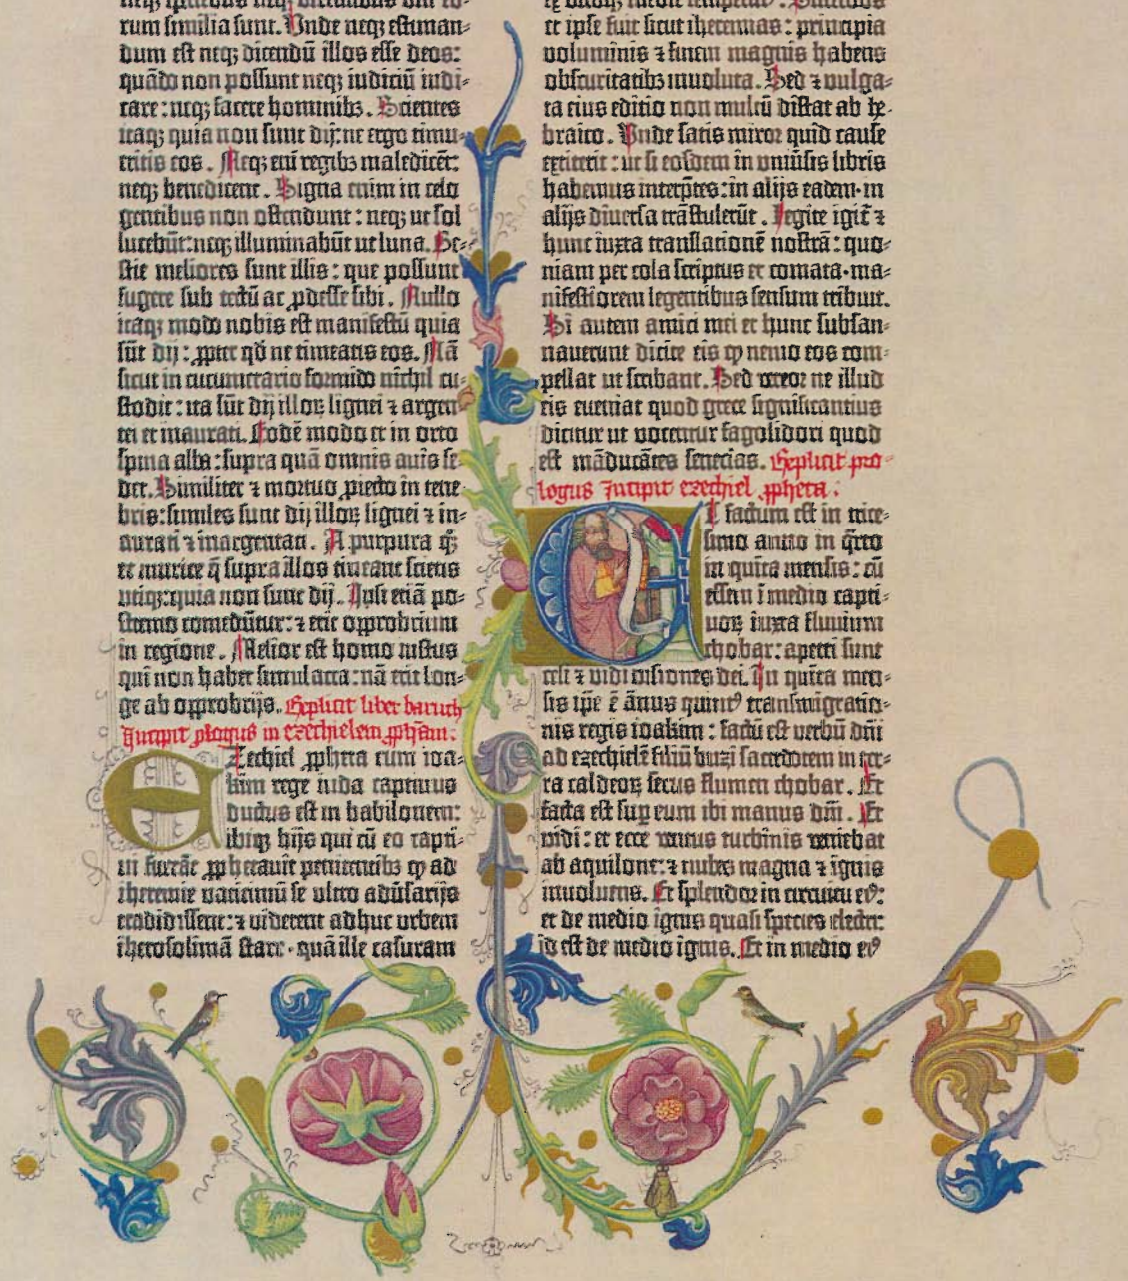 rum similia sunt. Unde neqꝫ estiman-
dum est neqꝫ dicendū illos esse deos:
quādo non possunt neqꝫ iudiciū iudi-
care: neqꝫ facere hominibꝫ. Scientes
itaqꝫ quia non sunt dij: ne ergo timu-
eritis eos. Neqꝫ eni regibꝫ maledicēt:
neqꝫ benedicent. Signa enim in celo
gentibus non ostendunt: neqꝫ ut sol
lucebūt: neqꝫ illuminabūt ut luna. Be-
stie meliores sunt illis: que possunt
fugere sub tectū ac ꝓdesse sibi. Nullo
itaqꝫ modo nobis est manifestū quia
sūt dij: ꝓpter qd ne timeatis eos. Nā
sicut in cucumerario formido nichil cu-
stodit: ita sūt dij illoꝝ lignei ⁊ argen-
tei et inaurati. Eodē modo et in orto
spina alba: supra quā omnis auis se-
det. Similiter ⁊ mortuo ꝓiecto in tene-
bris: similes sunt dij illoꝝ lignei ⁊ in-
aurati ⁊ inargentati. A purpura qꝫ
et murice q̄ supra illos tineant scietis
utiqꝫ: quia non sunt dij. Ipsi etiā po-
stremo comedūtur: ⁊ erit opprobrium
in regione. Melior est homo iustus
qui non habet simulacra: nā erit lon-
ge ab opprobrijs. Explicit liber baruch
Incipit ꝓlogus in ezechielem ꝓphetam.
Ezechiel ꝓpheta cum ioa-
kim rege iuda captiuus
ductus est in babilonem:
ibiqꝫ hijs qui cū eo capti-
ui fuerāt ꝓphetauit penitentibꝫ ꝙ ad
iheremie vaticiniū se ultro aduersarijs
tradidissent: ⁊ viderent adhuc urbem
iherosolimā stare. quā ille casuram
et ipse fuit sicut iheremias: principia
voluminis ⁊ finem magnis habens
obscuritatibꝫ inuoluta. Sed ⁊ vulga-
ta eius editio non multū distat ab he-
braico. Unde satis miror quid cause
extiterit: ut si eosdem in uniūsis libris
habemus interp̄tes: in alijs eadem. in
alijs diuersa trāstulerūt. Legite igit̄ ⁊
hunc iuxta translationē nostrā: quo-
niam per cola scriptus et comata. ma-
nifestiorem legentibus sensum tribuit.
Si autem amici mei et hunc subsan-
nauerint dicite eis ꝙ nemo eos com-
pellat ut scribant. Sed vereor ne illud
eis eueniat quod grece significantius
dicitur ut vocentur fagolidori quod
est māducātes senecias. Explicit pro-
logus Incipit ezechiel ꝓpheta.
Et factum est in trice-
simo anno in q̄rto
in quīta mensis: cū
essem ī medio capti-
uoꝝ iuxta fluuium
chobar: aperti sunt
celi ⁊ vidi visiones dei. In quīta men-
sis ip̄e ē ānus quintꝰ transmigratio-
nis regis ioakim: factū est verbū dn̄i
ad ezechielē filiū buzi sacerdotem in ter-
ra caldeoꝝ secus flumen chobar. Et
facta est suꝑ eum ibi manus dn̄i. Et
vidi: et ecce ventus turbinis veniebat
ab aquilone: ⁊ nubes magna ⁊ ignis
inuoluens. Et splendor in circuitu eiꝰ:
et de medio ignis quasi species electri:
id est de medio ignis. Et in medio eiꝰ